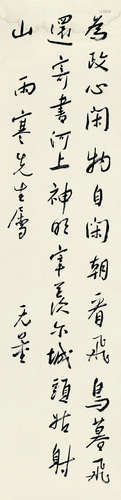 為政心閑物自閑朝看飛鳥暮飛
還寄書河上神明宰羨尔城頭姑射
山 雨寒先生屬 无量